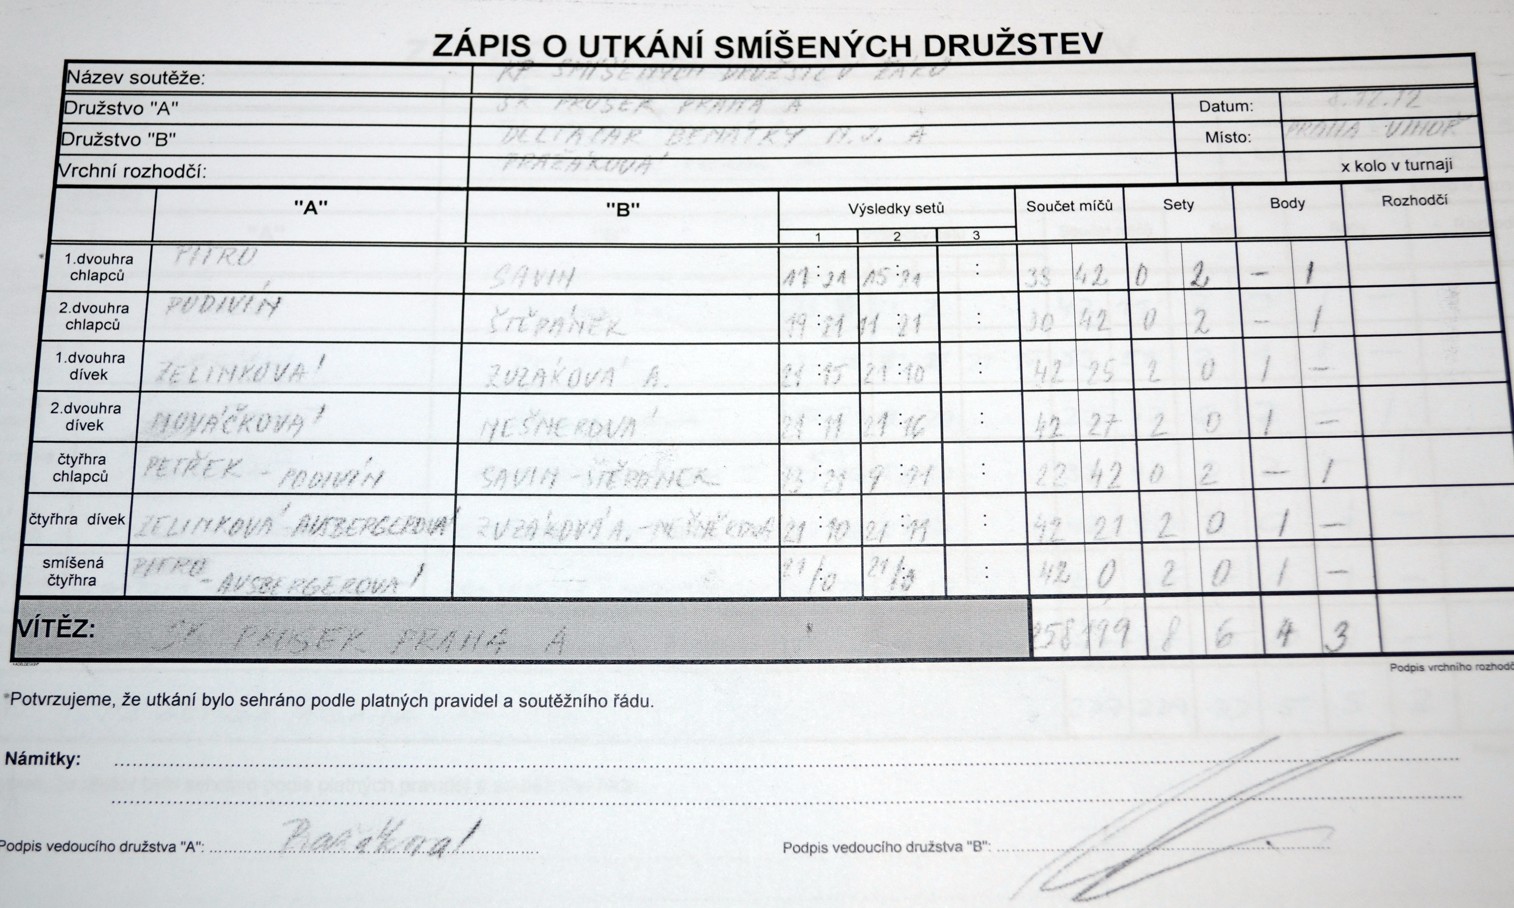 ZÁPIS O UTKÁNÍ SMÍŠENÝCH DRUŽSTEV
Název soutěže: KP SMÍŠENÝCH DRUŽSTEV ŽÁKŮ
Družstvo "A" SK PRUSEK PRAHA A Datum: 8.12.12
Družstvo "B" BENÁTKY N.J. A Místo: PRAHA VINOŘ
Vrchní rozhodčí: PRAŽÁKOVÁ x kolo v turnaji
"A" "B" Výsledky setů Součet míčů Sety Body Rozhodčí
1 2 3
1.dvouhra chlapců PITRO SAVIN 17:21 15:21 : 38 42 0 2 – 1
2.dvouhra chlapců PODIVÍN ŠTĚPÁNEK 19:21 11:21 : 30 42 0 2 – 1
1.dvouhra dívek ZELINKOVÁ ZUZÁKOVÁ A. 21:15 21:10 : 42 25 2 0 1 –
2.dvouhra dívek NOVÁČKOVÁ NEŠNEROVÁ 21:11 21:16 : 42 27 2 0 1 –
čtyřhra chlapců PETŘEK - PODIVÍN SAVIN - ŠTĚPÁNEK 13:21 9:21 : 22 42 0 2 – 1
čtyřhra dívek ZELINKOVÁ - AUSBERGEROVÁ ZUZÁKOVÁ A. - NEŠNEROVÁ 21:10 21:11 : 42 21 2 0 1 –
smíšená čtyřhra PITRO - AUSBERGEROVÁ 21/0 21/0 : 42 0 2 0 1 –
VÍTĚZ: SK PRUSEK PRAHA A 258 199 8 6 4 3
Podpis vrchního rozhodč
*Potvrzujeme, že utkání bylo sehráno podle platných pravidel a soutěžního řádu.
Námitky:
Podpis vedoucího družstva "A":
Podpis vedoucího družstva "B":